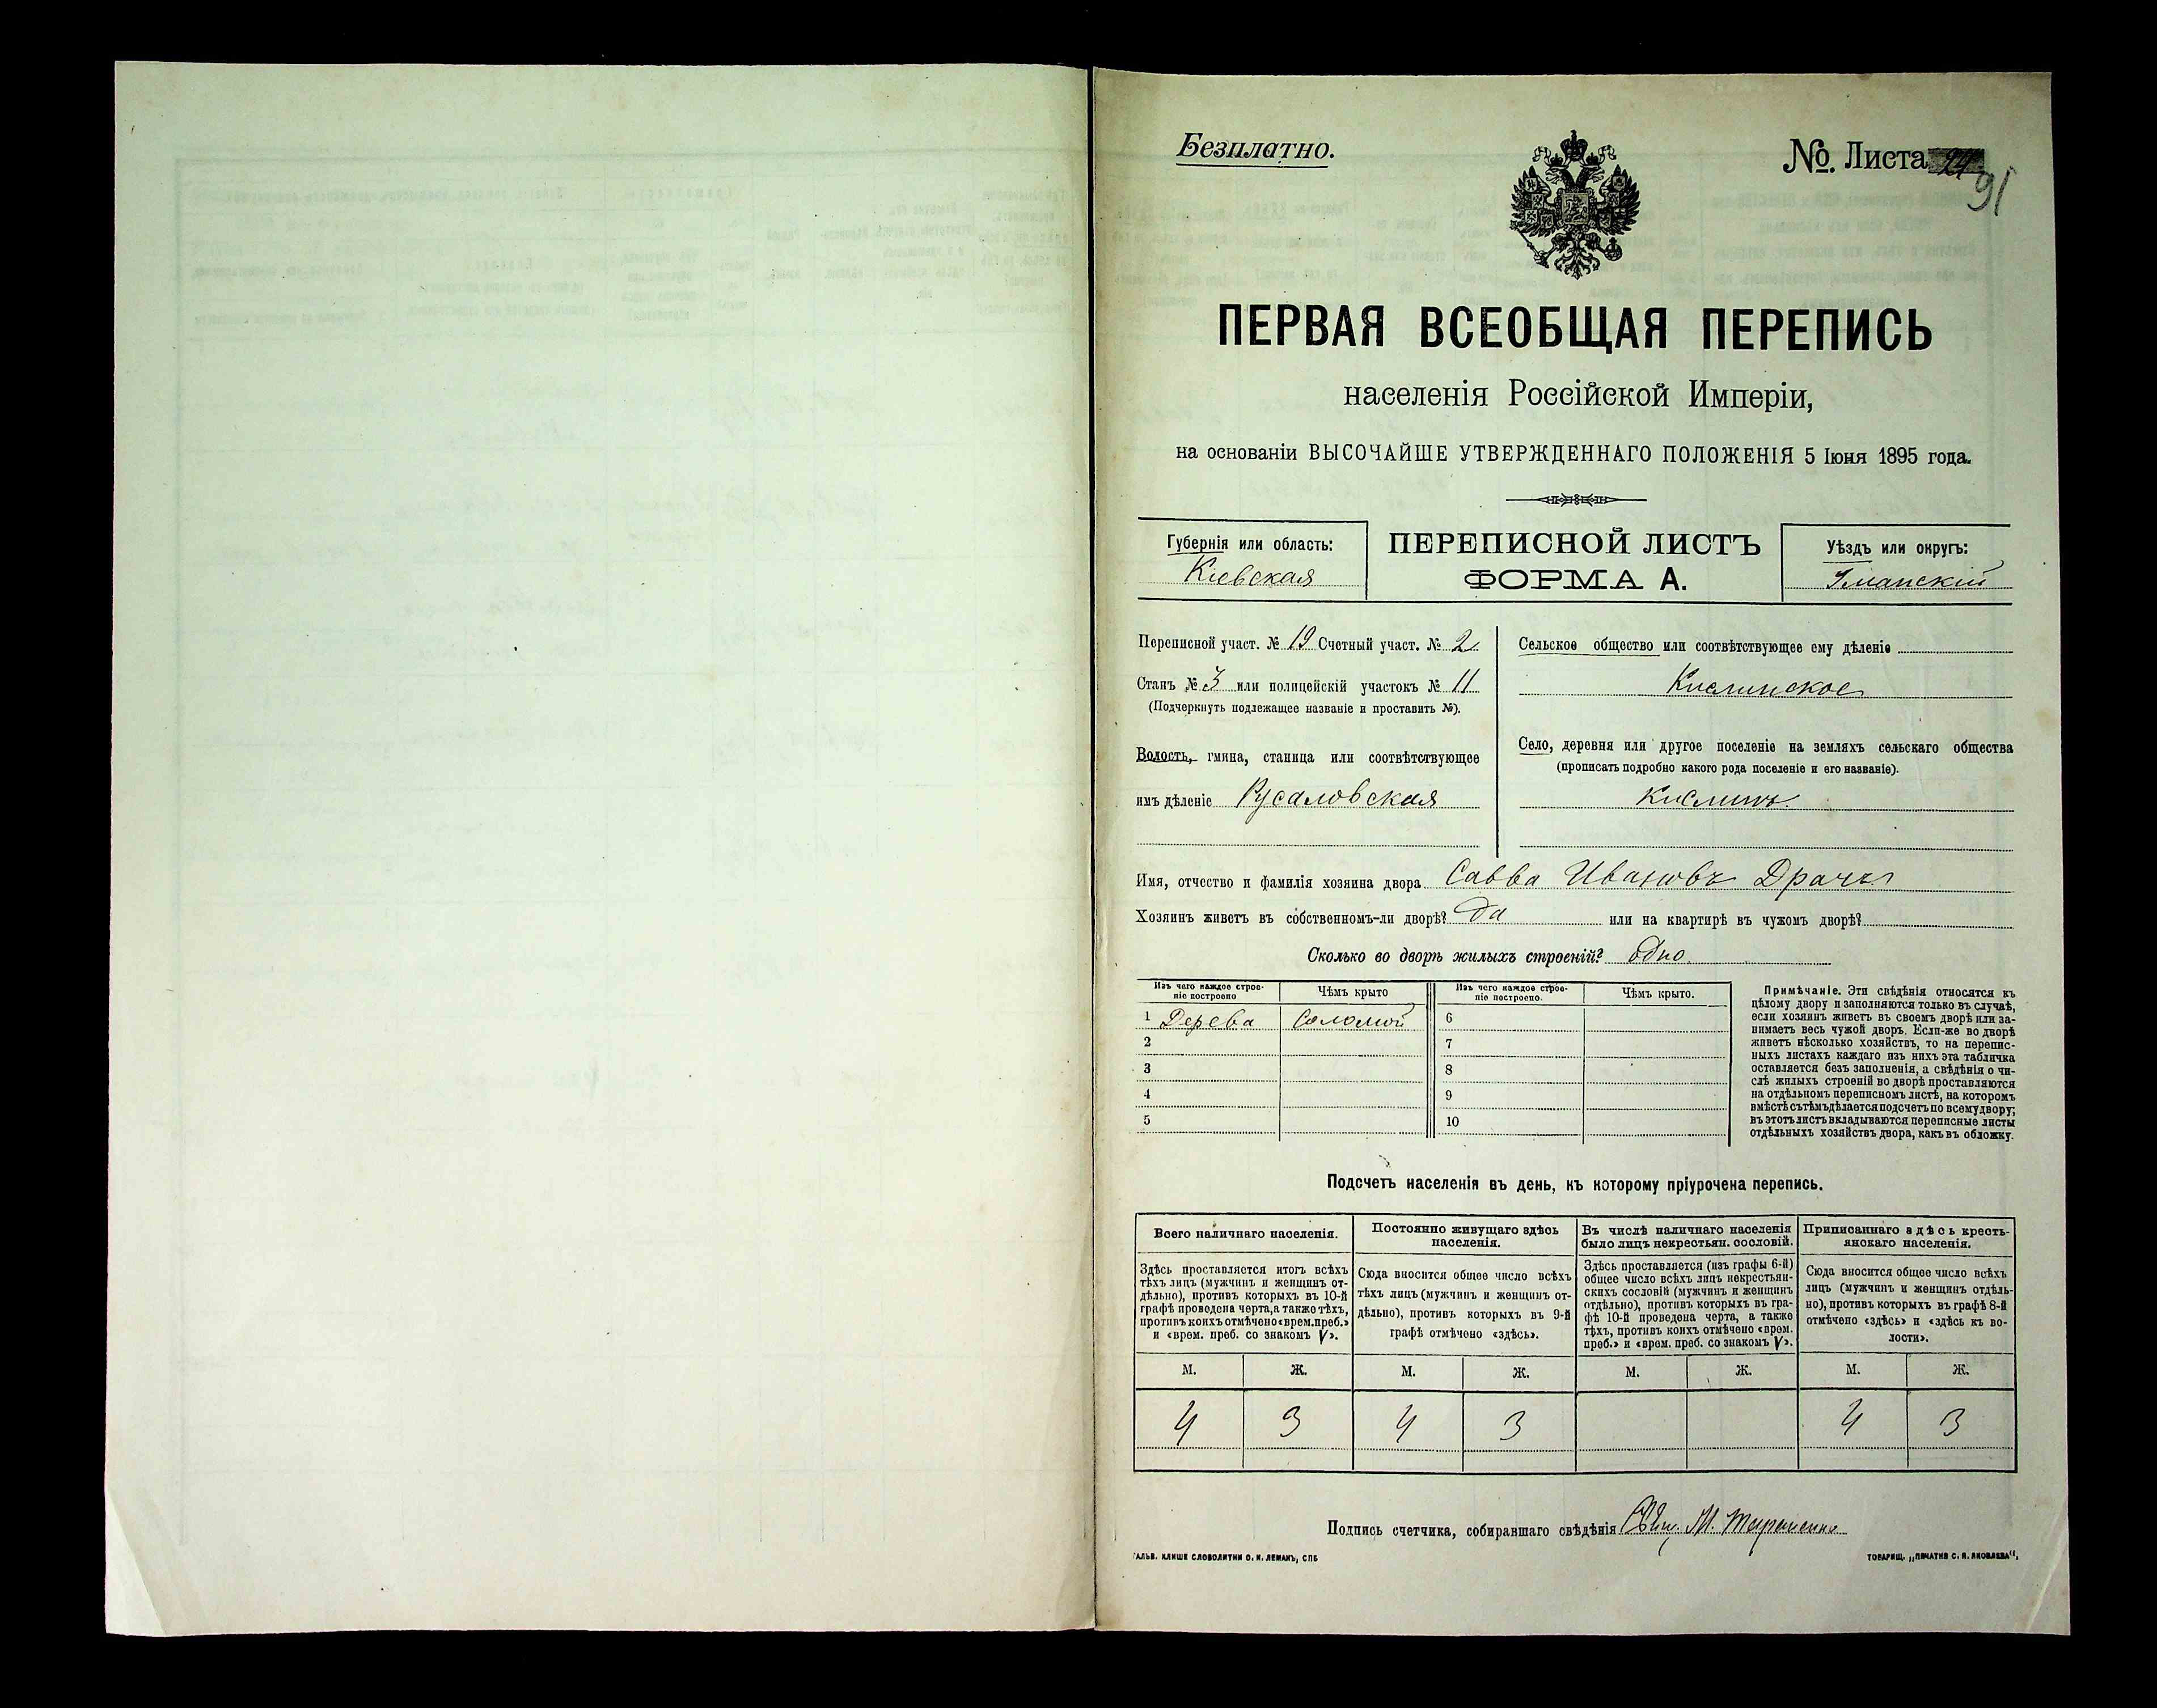 Безплатно.
№. Листа 24
91
ПЕРВАЯ ВСЕОБЩАЯ ПЕРЕПИСЬ
населенія Россійской Имперіи,
на основаніи ВЫСОЧАЙШЕ УТВЕРЖДЕННАГО ПОЛОЖЕНІЯ 5 Іюня 1895 года.
Губернія или область:
Кіевская
ПЕРЕПИСНОЙ ЛИСТЪ
ФОРМА А.
Уѣздъ или округъ:
Уманскій
Переписной участ. № 19 Счетный участ. № 2
Станъ № 3 или полицейскій участокъ № 11
(Подчеркнуть подлежащее названіе и проставить №).
Волость, гмина, станица или соотвѣтствующее
имъ дѣленіе Русаловская
Сельское общество или соотвѣтствующее ему дѣленіе
Кислинское
Село, деревня или другое поселеніе на земляхъ сельскаго общества
(прописать подробно какого рода поселеніе и его названіе).
Кислинъ
Имя, отчество и фамилія хозяина двора Савва Ивановъ Драчъ
Хозяинъ живетъ въ собственномъ-ли дворѣ? Да или на квартирѣ въ чужомъ дворѣ?
Сколько во дворѣ жилыхъ строеній? Одно
Изъ чего каждое строеніе построено
Чѣмъ крыто
Изъ чего каждое строеніе построено.
Чѣмъ крыто.
1 Дерева Соломой 6
2 7
3 8
4 9
5 10
Примѣчаніе. Эти свѣдѣнія относятся къ
цѣлому двору и заполняются только въ случаѣ,
если хозяинъ живетъ въ своемъ дворѣ или за-
нимаетъ весь чужой дворъ. Если-же во дворѣ
живетъ нѣсколько хозяйствъ, то на перепис-
ныхъ листахъ каждаго изъ нихъ эта табличка
оставляется безъ заполненія, а свѣдѣнія о чи-
слѣ жилыхъ строеній во дворѣ проставляются
на отдѣльномъ переписномъ листѣ, на которомъ
вмѣстѣ съ тѣмъ дѣлается подсчетъ по всему двору;
въ этотъ листъ вкладываются переписные листы
отдѣльныхъ хозяйствъ двора, какъ въ обложку.
Подсчетъ населенія въ день, къ которому пріурочена перепись.
Всего наличнаго населенія.
Здѣсь проставляется итогъ всѣхъ
тѣхъ лицъ (мужчинъ и женщинъ от-
дѣльно), противъ которыхъ въ 10-й
графѣ проведена черта, а также тѣхъ,
противъ коихъ отмѣчено «врем. преб.»
и «врем. преб. со знакомъ V».
Постоянно живущаго здѣсь
населенія.
Сюда вносится общее число всѣхъ
тѣхъ лицъ (мужчинъ и женщинъ от-
дѣльно), противъ которыхъ въ 9-й
графѣ отмѣчено «здѣсь».
Въ числѣ наличнаго населенія
было лицъ некрестьян. сословій.
Здѣсь проставляется (изъ графы 6-й)
общее число всѣхъ лицъ некрестьян-
скихъ сословій (мужчинъ и женщинъ
отдѣльно), противъ которыхъ въ гра-
фѣ 10-й проведена черта, а также
тѣхъ, противъ коихъ отмѣчено «врем.
преб.» и «врем. преб. со знакомъ V».
Приписаннаго здѣсь кресть-
янскаго населенія.
Сюда вносится общее число всѣхъ
лицъ (мужчинъ и женщинъ отдѣль-
но), противъ которыхъ въ графѣ 8-й
отмѣчено «здѣсь» и «здѣсь къ во-
лости».
М. Ж. М. Ж. М. Ж. М. Ж.
4 3 4 3 4 3
Подпись счетчика, собиравшаго свѣдѣнія Свящ. М. Тараненко
ГАЛЬВ. КЛИШЕ СЛОВОЛИТНИ О. И. ЛЕМАНЪ, СПБ
ТОВАРИЩ. „ПЕЧАТНЯ С. П. ЯКОВЛЕВА“,